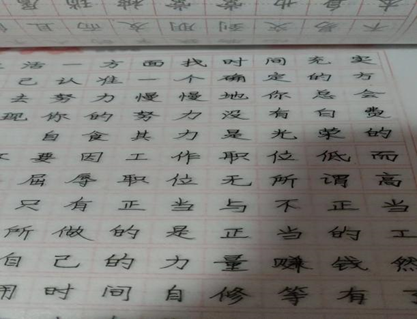 活一方面找时间充实
己认准一个确定的方
去努力慢慢地你总会
现你的努力没有白费
自食其力是光荣的
要因工作职位低而
屈辱职位无所谓高
只有正当与不正当
所做的是正当的工
自己的力量赚钱然
用时间自修等有